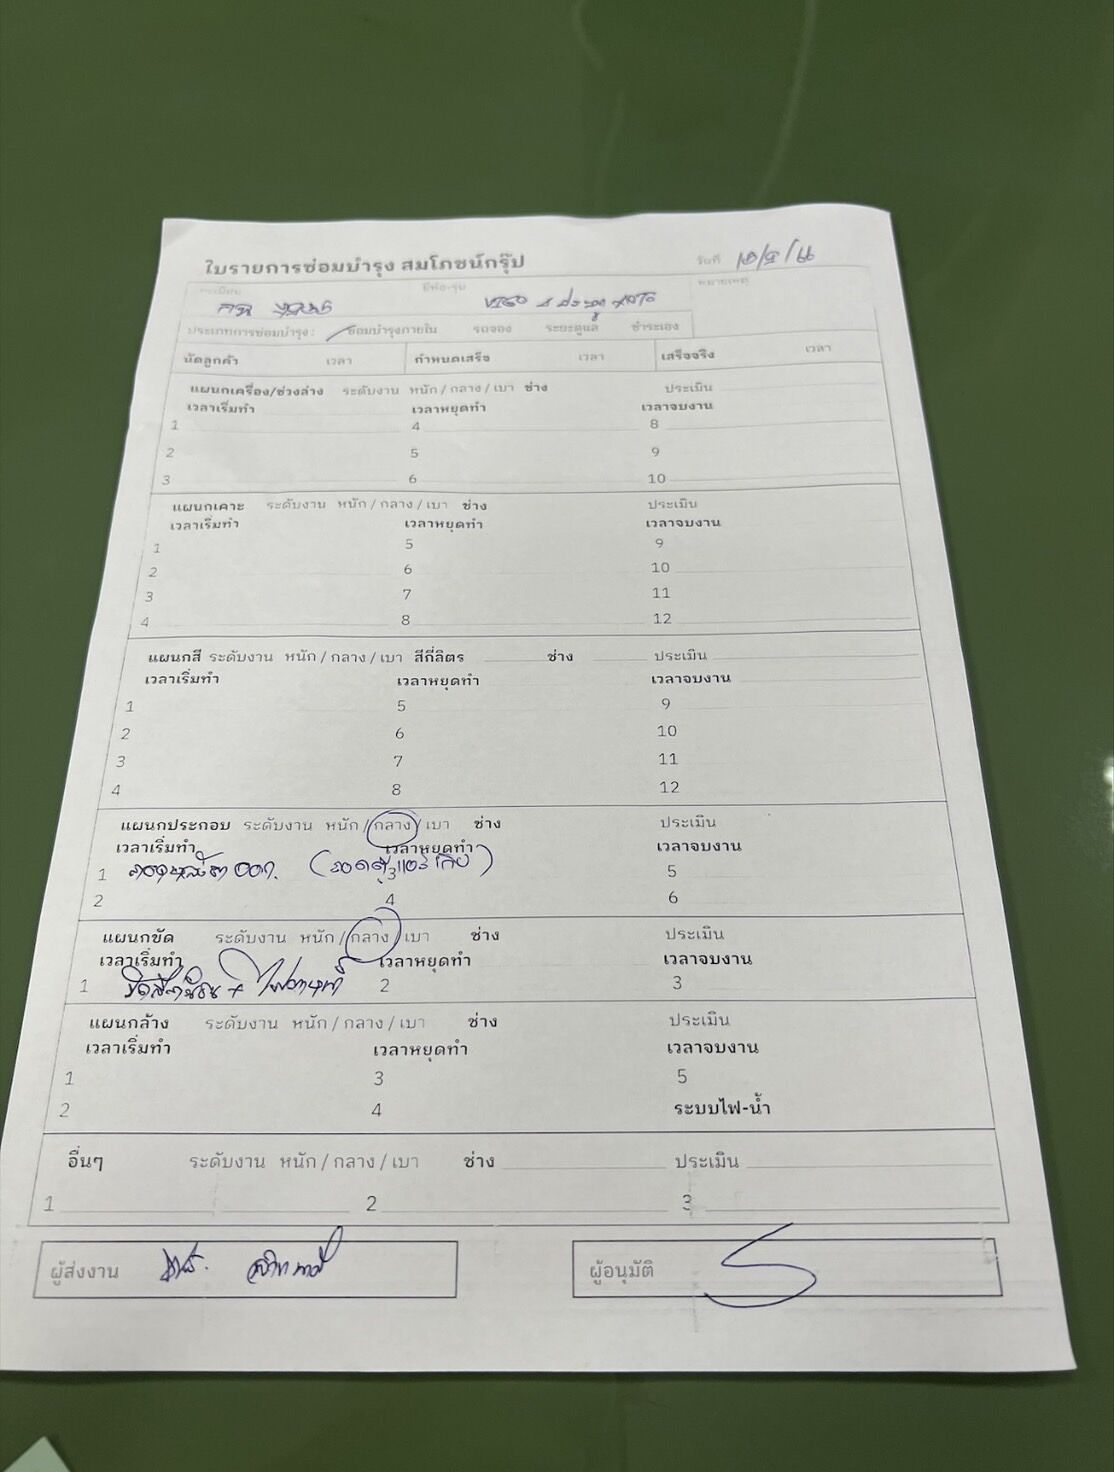 ใบรายการซ่อมบำรุง สมโภชน์กรุ๊ป วันที่
ทะเบียน ยี่ห้อ-รุ่น หมายเหตุ
ประเภทการซ่อมบำรุง : ซ่อมบำรุงภายใน รถจอง ระยะดูแล ชำระเอง
นัดลูกค้า เวลา กำหนดเสร็จ เวลา เสร็จจริง เวลา
แผนกเครื่อง/ช่วงล่าง ระดับงาน หนัก / กลาง / เบา ช่าง ประเมิน
เวลาเริ่มทำ เวลาหยุดทำ เวลาจบงาน
1 4 8
2 5 9
3 6 10
แผนกเคาะ ระดับงาน หนัก / กลาง / เบา ช่าง ประเมิน
เวลาเริ่มทำ เวลาหยุดทำ เวลาจบงาน
1 5 9
2 6 10
3 7 11
4 8 12
แผนกสี ระดับงาน หนัก / กลาง / เบา สีกี่ลิตร ช่าง ประเมิน
เวลาเริ่มทำ เวลาหยุดทำ เวลาจบงาน
1 5 9
2 6 10
3 7 11
4 8 12
แผนกประกอบ ระดับงาน หนัก / กลาง / เบา ช่าง ประเมิน
เวลาเริ่มทำ เวลาหยุดทำ เวลาจบงาน
1 3 5
2 4 6
แผนกขัด ระดับงาน หนัก / กลาง / เบา ช่าง ประเมิน
เวลาเริ่มทำ เวลาหยุดทำ เวลาจบงาน
1 2 3
แผนกล้าง ระดับงาน หนัก / กลาง / เบา ช่าง ประเมิน
เวลาเริ่มทำ เวลาหยุดทำ เวลาจบงาน
1 3 5
2 4 ระบบไฟ-น้ำ
อื่นๆ ระดับงาน หนัก / กลาง / เบา ช่าง ประเมิน
1 2 3
ผู้ส่งงาน ผู้อนุมัติ